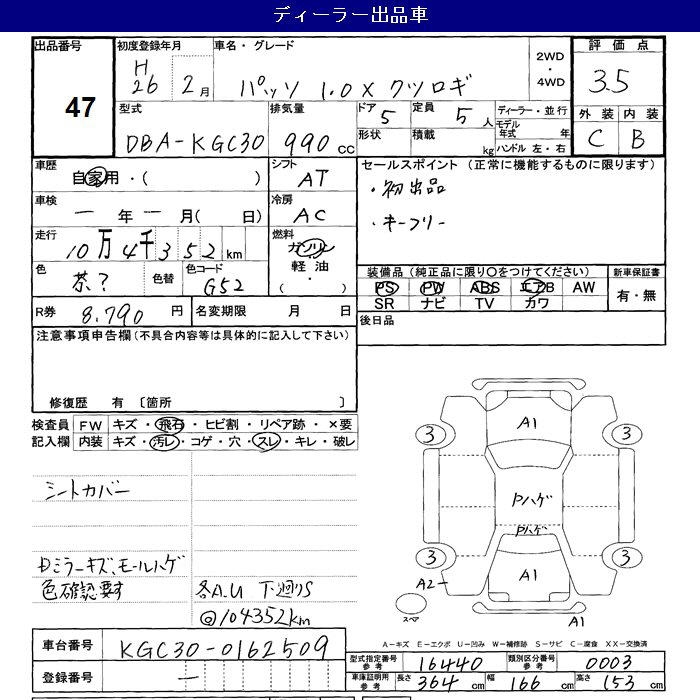 ディーラー出品車
出品番号 初度登録年月 車名・グレード 2WD・4WD 評価点
47 H26 2月 パッソ 1.0X クツロギ 3.5
型式 排気量 ドア 5 定員 5人 ディーラー・並行 外装 内装
DBA-KGC30 990cc 形状 積載 kg モデル年式 年 C B
ハンドル 左・右
車歴 シフト セールスポイント (正常に機能するものに限ります)
自家用・( ) AT ・初出品
車検 冷房 ・キーフリー
ー年ー月( 日) AC
走行 燃料
10万4千352km ガソリン
軽油
( ・ )
色 色替 色コード 装備品(純正品に限り○をつけてください) 新車保証書
茶? G52 PS PW ABS エアB AW 有・無
SR ナビ TV カワ
R券 8.790円 名変期限 月 日 後日品
注意事項申告欄(不具合内容等は具体的に記入して下さい)
修復歴 有 〔箇所 〕
検査員 FW キズ・飛石・ヒビ割・リペア跡・×要
記入欄 内装 キズ・汚レ・コゲ・穴・スレ・キレ・破レ
シートカバー
Dミラーキズ、モールハゲ
色確認要す 各A.U 下廻りS
@104352km
A1
3 3
Pハゲ
Pハゲ
3 3
A2 A1
スペア A1
車台番号 KGC30-0162509
登録番号 ー
A-キズ E-エクボ U-凹み W-補修跡 S-サビ C-腐食 XX-交換済
型式指定番号 参考 16440 類別区分番号 参考 0003
車庫証明用 参考 長さ 364cm 幅 166cm 高さ 153cm